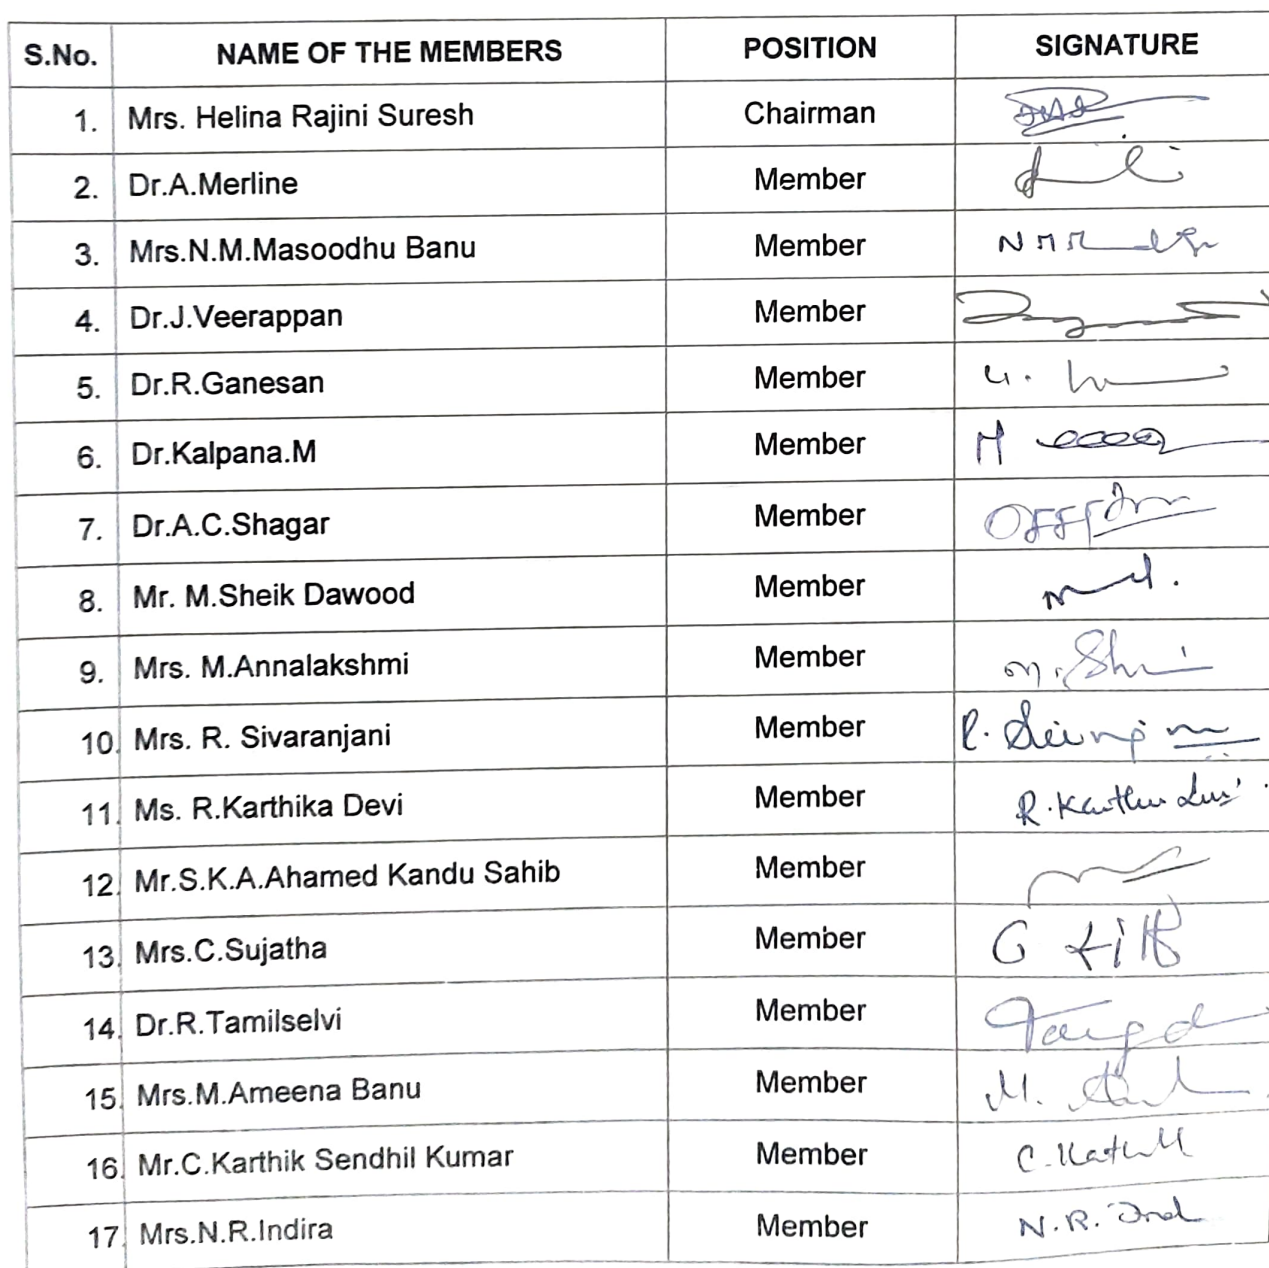 S.No. NAME OF THE MEMBERS POSITION SIGNATURE
1. Mrs. Helina Rajini Suresh Chairman
2. Dr.A.Merline Member
3. Mrs.N.M.Masoodhu Banu Member
4. Dr.J.Veerappan Member
5. Dr.R.Ganesan Member
6. Dr.Kalpana.M Member M
7. Dr.A.C.Shagar Member
8. Mr. M.Sheik Dawood Member
9. Mrs. M.Annalakshmi Member
10. Mrs. R. Sivaranjani Member R.
11. Ms. R.Karthika Devi Member R.
12. Mr.S.K.A.Ahamed Kandu Sahib Member
13. Mrs.C.Sujatha Member
14. Dr.R.Tamilselvi Member
15. Mrs.M.Ameena Banu Member M.
16. Mr.C.Karthik Sendhil Kumar Member C.
17. Mrs.N.R.Indira Member N.R. Ind